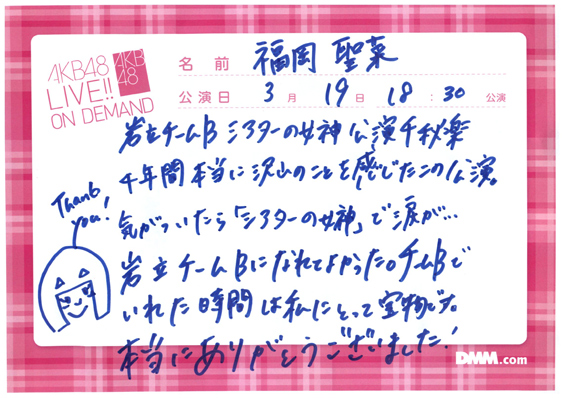 AKB48
LIVE!!
ON DEMAND
AKB
48
名前 福岡 聖菜
公演日 3月 19日 18:30 公演
岩立チームB シアターの女神公演千秋楽
半年間本当に沢山のことを感じたこの公演。
気がついたら「シアターの女神」で涙が…
岩立チームBになれてよかった。チームBで
いれた時間は私にとって宝物です。
本当にありがとうございました!
Thank
you!
DMM.com